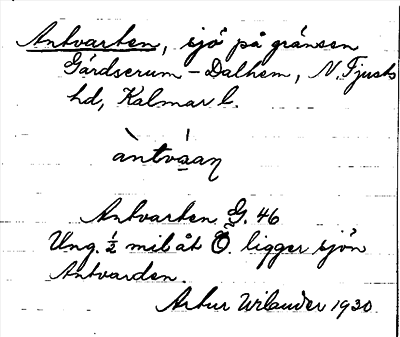 Antvarten, sjö på gränsen
Gärdserum - Dalhem, N. Tjusts
hd, Kalmar l.
àntváṣaŋ
Antvarten G. 46
Ung. ½ mil åt Ö. ligger sjön
Antvarden.
Artur Wilander 1930